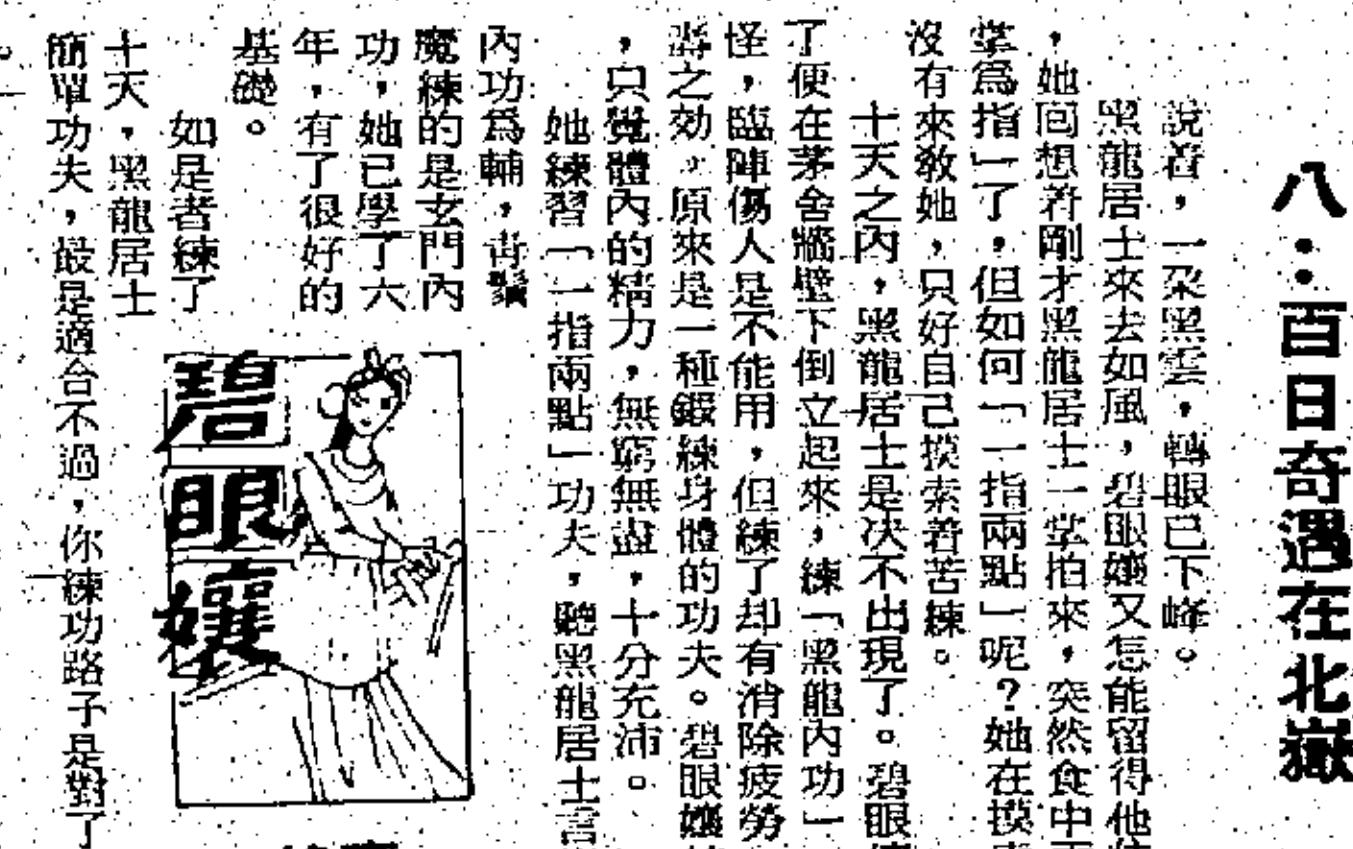 八：百日奇遇在北嶽
說着，一朵黑雲，轉眼已下峰。
黑龍居士來去如風，碧眼孃又怎能留得他
，她回想着剛才黑龍居士一掌拍來，突然食中
掌爲指」了，但如何「一指兩點」呢？她在摸
沒有來敎她，只好自己摸索着苦練。
十天之內，黑龍居士是决不出現了。碧眼
了便在茅舍牆壁下倒立起來，練「黑龍內功」
怪，臨陣傷人是不能用，但練了却有消除疲勞
之効。原來是一種鍛練身體的功夫。碧眼孃
，只覺體內的精力，無窮無盡，十分充沛。
她練習「一指兩點」功夫，聽黑龍居士言
內功爲輔，靑鬚
魔練的是玄門內
功，她已學了六
年，有了很好的
基礎。
如是者練了
十天，黑龍居士
簡單功夫，最是適合不過，你練功路子是對了
。
碧眼孃